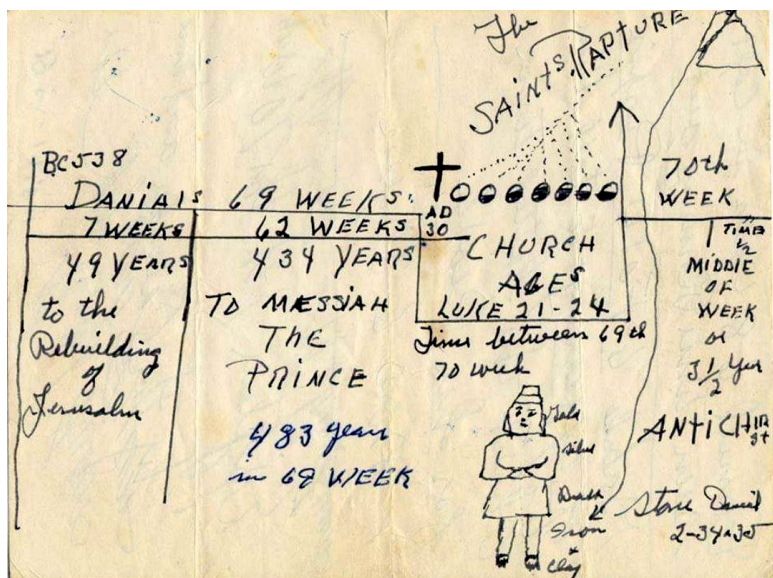 The
SAINTS RAPTURE
BC538
DANIALS 69 WEEKS
7 WEEKS 62 WEEKS
49 YEARS 434 YEARS
to the
Rebuilding
of
Jerusalm
TO MÆSSIAH
THE
PRINCE
483 years
in 69 WEEK
AD
30
CHURCH
AGES
LUKE 21-24
Time between 69th
70 week
70th
WEEK
1 TIME
1/2
MIDDLE
OF
WEEK
or
3 1/2 Year
ANTICHIR
st
Gold
Silver
Brass
Iron
&
Clay
Stone Daniel
2-34+35